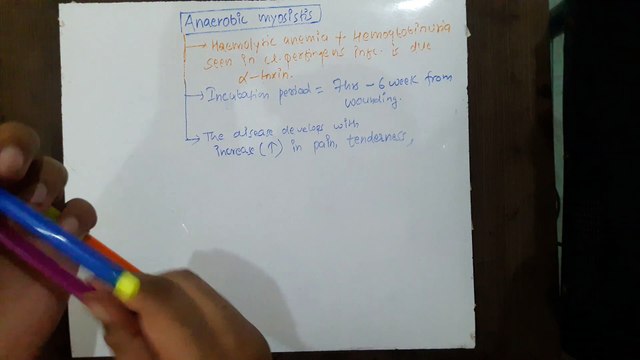 Anaerobic myosistis
→ Haemolytic anemia + Hemoglobinuria
seen in cl. perfingens infc. is due
α-toxin.
→ Incubation period = 7hrs - 6 week from
wounding.
→ The disease develops with
increase (↑) in pain, tenderness,